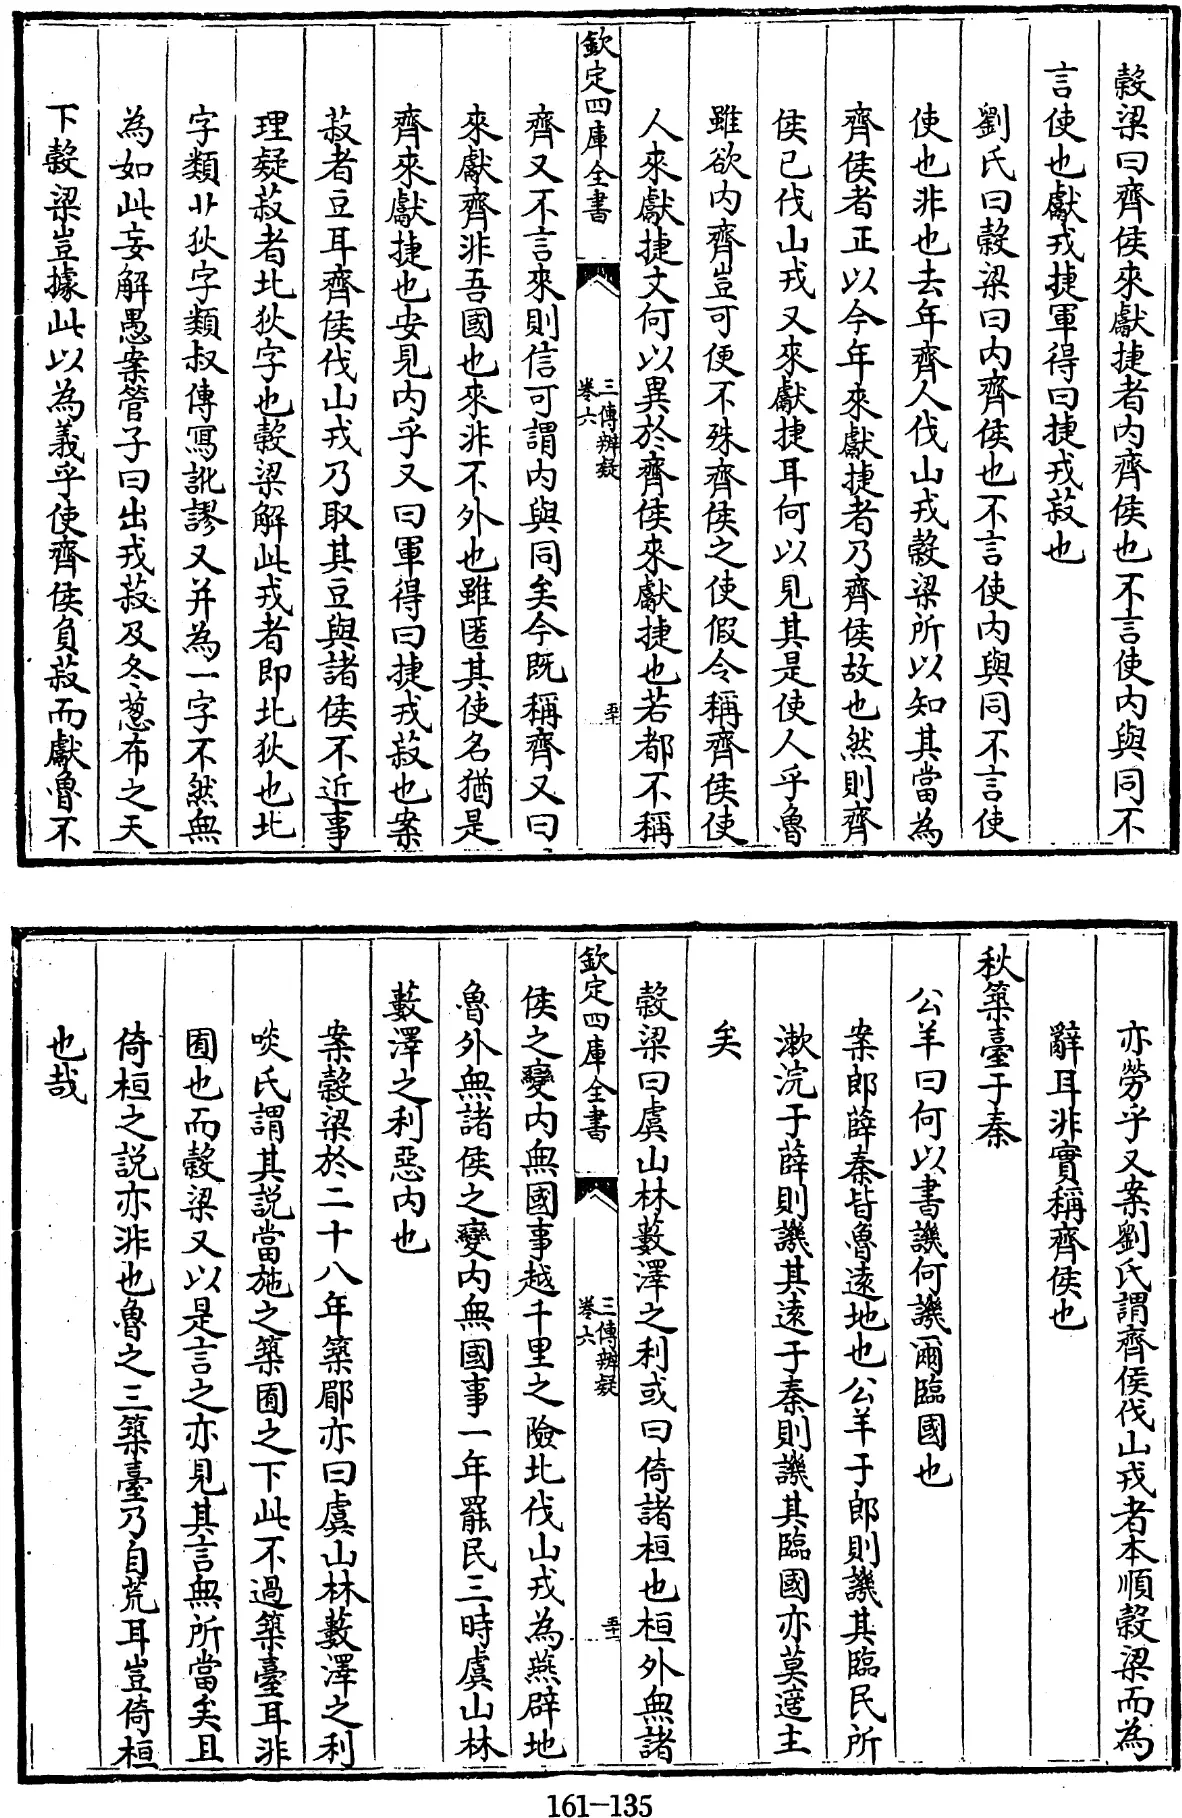 穀梁曰齊侯來獻捷者内齊侯也不言使内與同不
言使也獻戎捷軍得曰捷戎菽也
劉氏曰穀梁曰内齊侯也不言使内與同不言使
使也非也去年齊人伐山戎穀梁所以知其當為
齊侯者正以今年來獻捷者乃齊侯故也然則齊
侯已伐山戎又來獻捷耳何以見其是使人乎魯
雖欲内齊豈可便不殊齊侯之使假令稱齊侯使
人來獻捷文何以異於齊侯來獻捷也若都不稱
欽定四庫全書
三傳辨疑
卷六
五十
齊又不言來則信可謂内與同矣今既稱齊又曰
來獻齊非吾國也來非不外也雖匿其使名猶是
齊來獻捷也安見内乎又曰軍得曰捷戎菽也案
菽者豆耳齊侯伐山戎乃取其豆與諸侯不近事
理疑菽者北狄字也穀梁解此戎者即北狄也北
字類廾狄字類叔傳寫訛謬又并為一字不然無
為如此妄解愚案管子曰出戎菽及冬葱布之天
下穀梁豈據此以為義乎使齊侯負菽而獻魯不
亦勞乎又案劉氏謂齊侯伐山戎者本順穀梁而為
辭耳非實稱齊侯也
秋築臺于秦
公羊曰何以書譏何譏爾臨國也
案郎薛秦皆魯遠地也公羊于郎則譏其臨民所
漱浣于薛則譏其遠于秦則譏其臨國亦莫適主
矣
穀梁曰虞山林藪澤之利或曰倚諸桓也桓外無諸
欽定四庫全書
三傳辨疑
卷六
五十一
侯之變内無國事越千里之險北伐山戎為燕辟地
魯外無諸侯之變内無國事一年罷民三時虞山林
藪澤之利惡内也
案穀梁於二十八年築郿亦曰虞山林藪澤之利
啖氏謂其說當施之築囿之下此不過築臺耳非
囿也而穀梁又以是言之亦見其言無所當矣且
倚桓之説亦非也魯之三築臺乃自荒耳豈倚桓
也哉
161-135